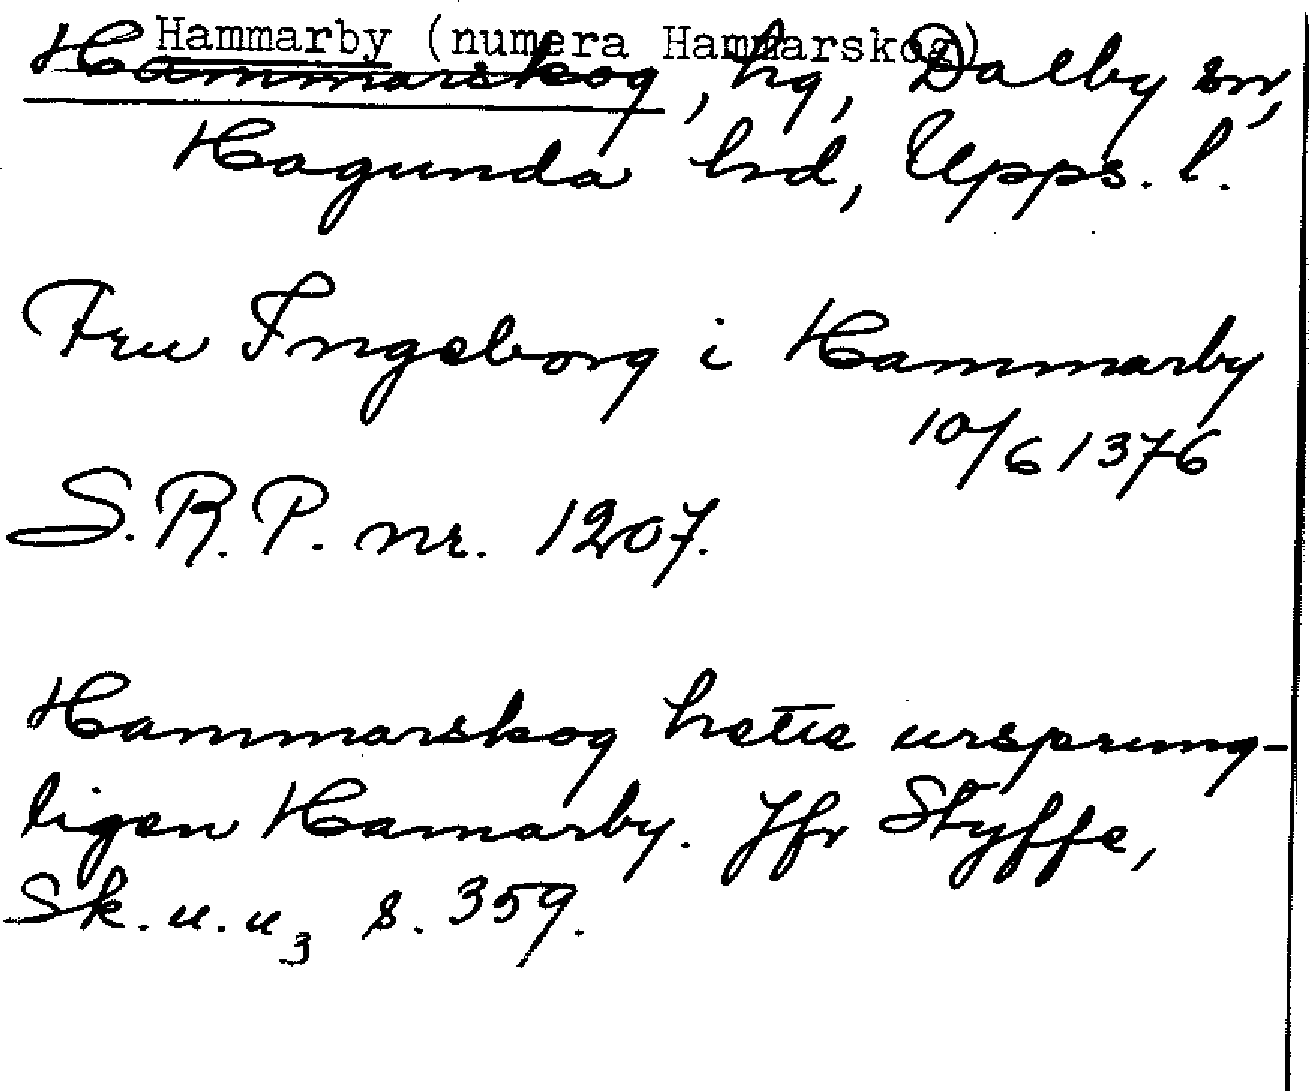 Hammarby (numera Hammarskog)
Hammarskog, hg, Dalby sn,
Hagunda hd, Upps. l.
Fru Ingeborg i Hammarby
10/6 1376
S.R.P. nr. 1207.
Hammarskog hette ursprung-
ligen Hamarby. Jfr Styffe,
Sk.u.u3 s. 359.